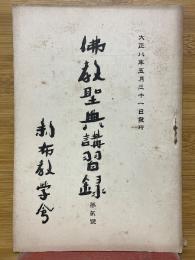 大正八年五月三十一日發行
佛教聖典講習錄
第貳號
新布教学會